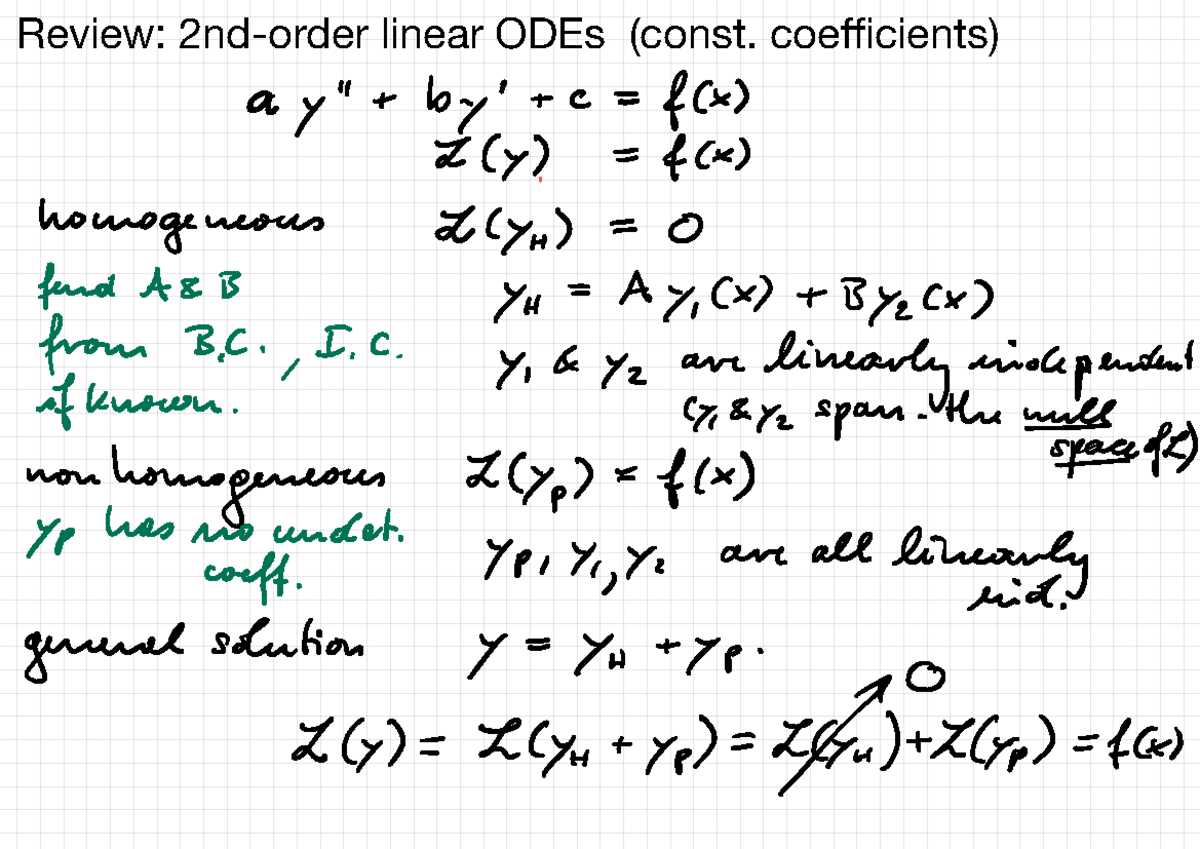 Review: 2nd-order linear ODEs (const. coefficients)
a y" + by' + c = f(x)
ℒ(y) = f(x)
homogeneous ℒ(y_H) = 0
find A & B y_H = A y_1(x) + B y_2(x)
from B.C., I.C. y_1 & y_2 are linearly independent
if known. (y_1 & y_2 span the null
space of ℒ)
nonhomogeneous ℒ(y_p) = f(x)
y_p has no undet.
coeff. y_p, y_1, y_2 are all linearly
ind.
general solution y = y_H + y_p.
0
ℒ(y) = ℒ(y_H + y_p) = ℒ(y_H) + ℒ(y_p) = f(x)